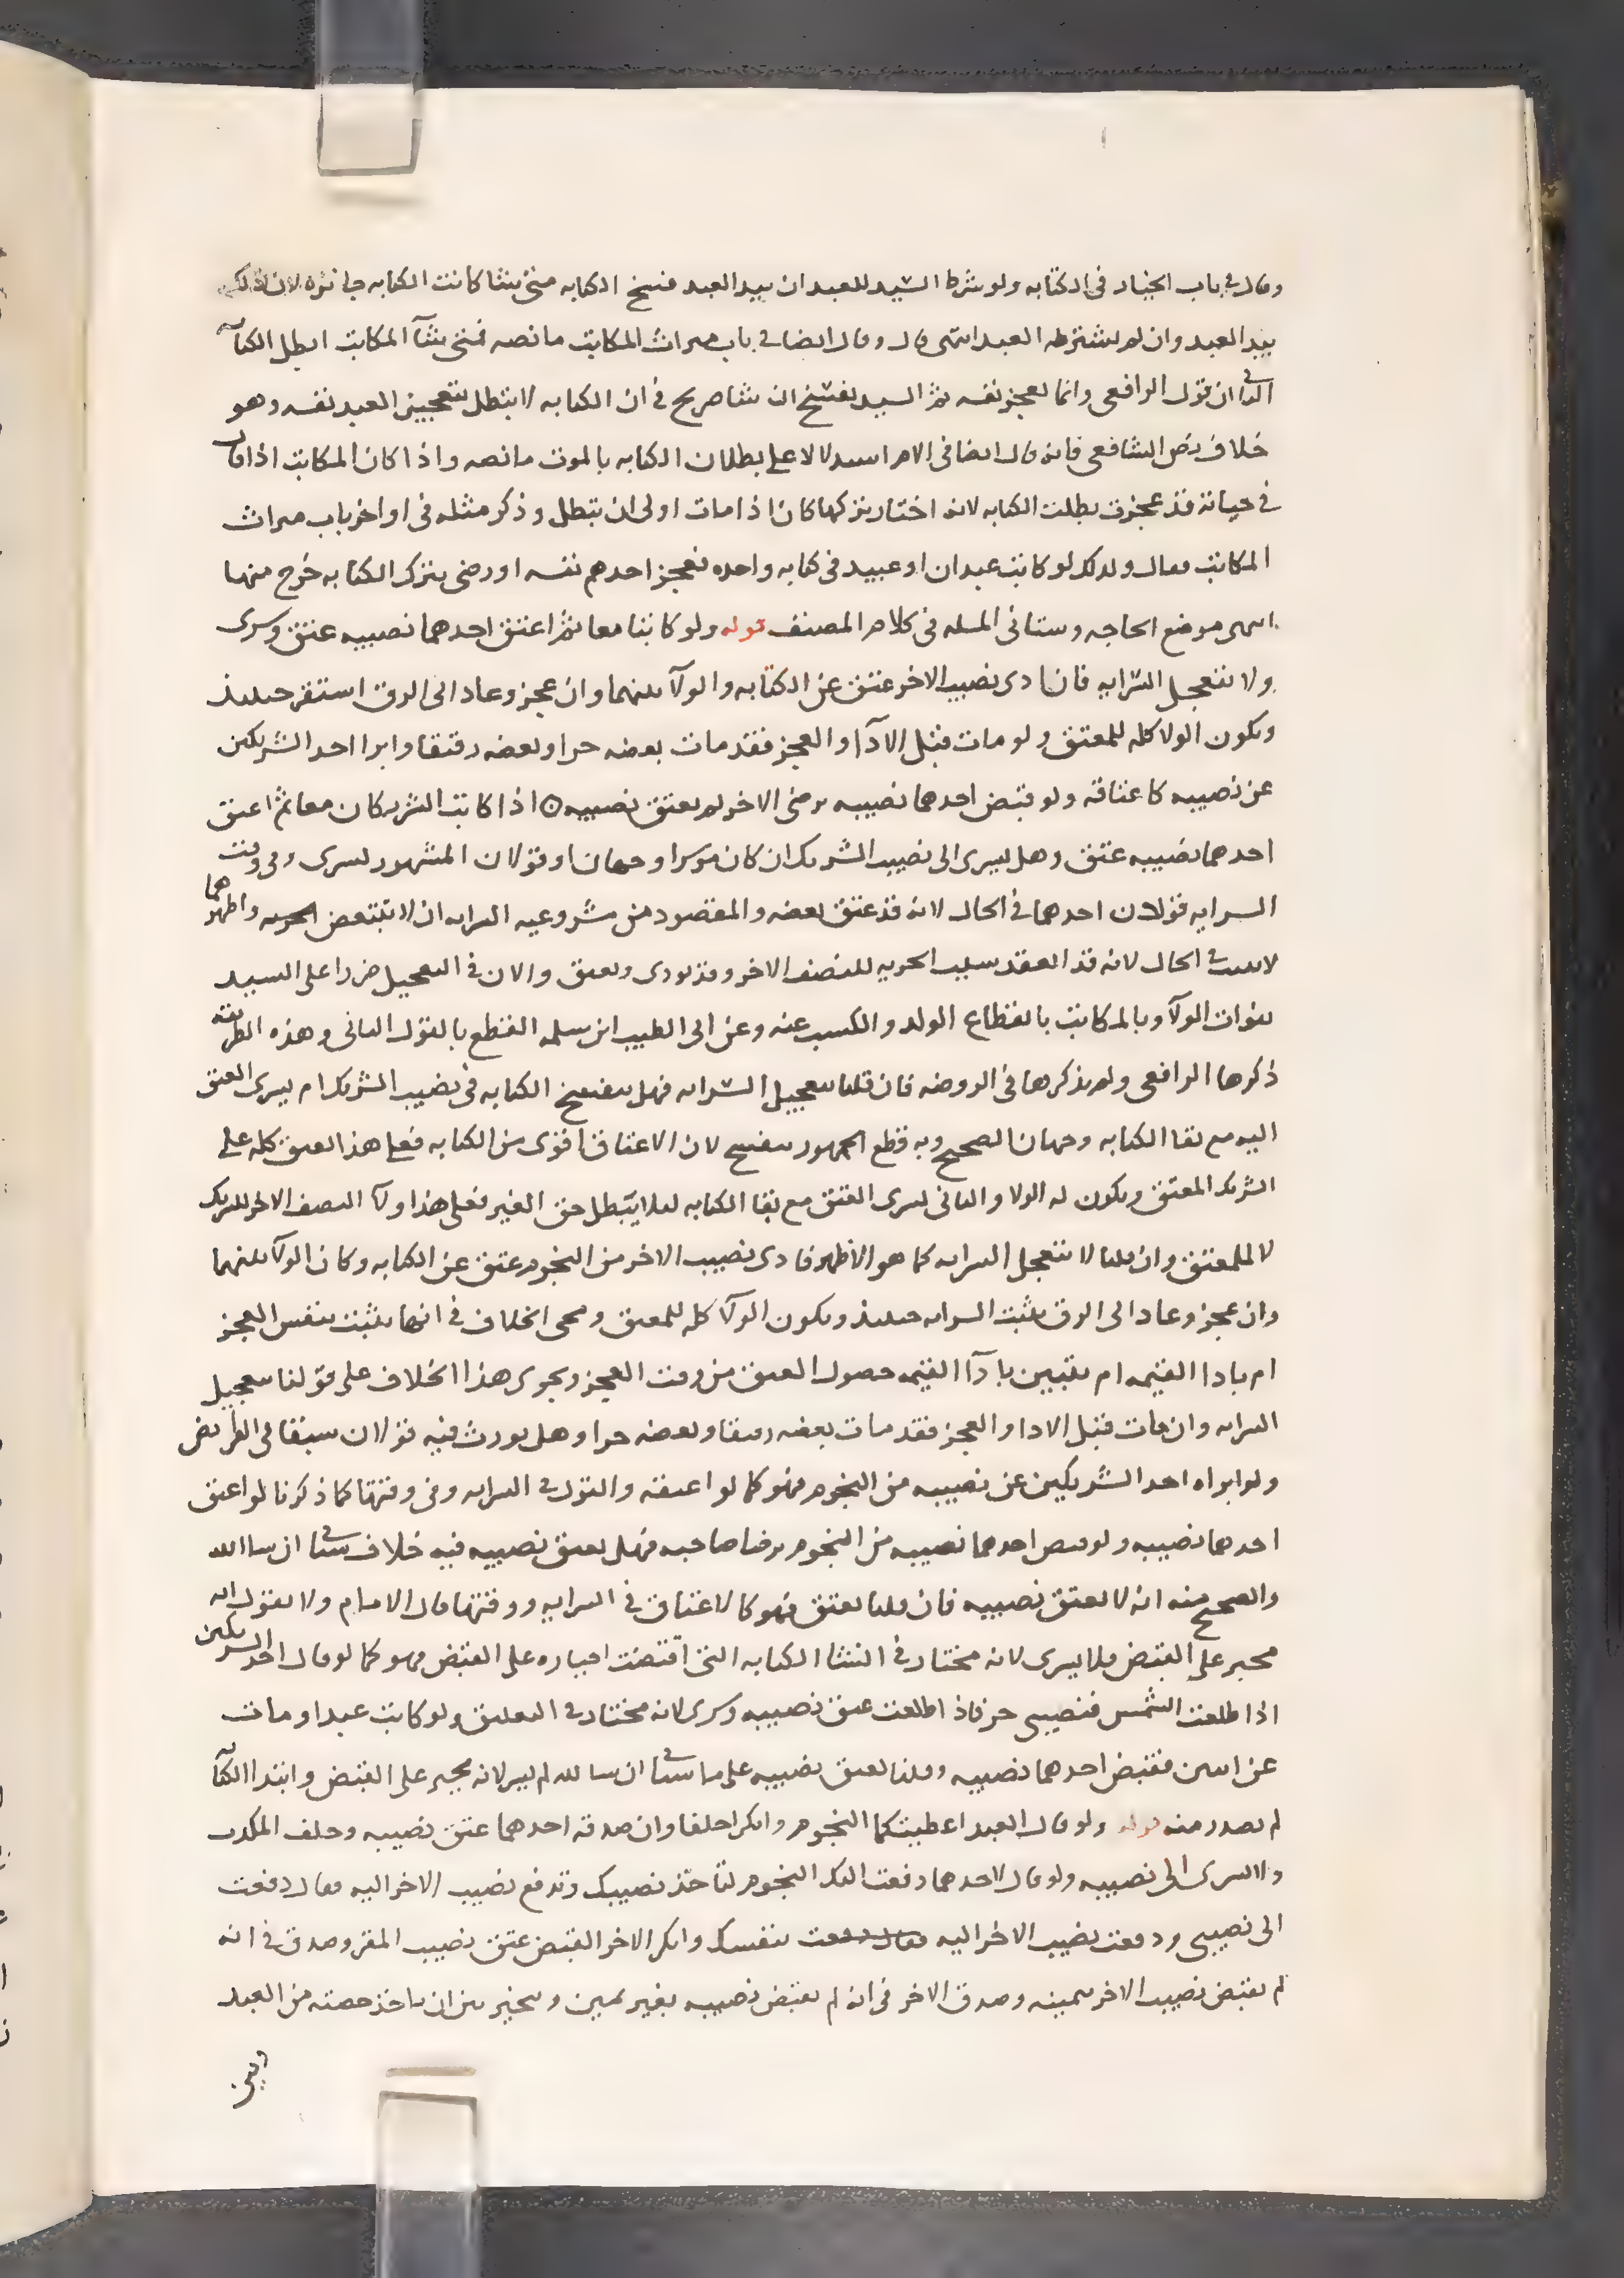 وقال في باب الخيار في الكتابه ولو شرط السيد للعبد ان بيد العبد فسخ الكتابه متى شا كانت الكتابه جايزه لان ذلك
بيد العبد وان لم يشترطه العبد انتهى قال وقال ايضا في باب ميراث المكاتب ما نصه فمتى شآ المكاتب ابطل الكتابه
ان قول الرافعي وانما يعجز نفسه ثم السيد يفسخ ان شا صريح في ان الكتابه لا تبطل بتعجيز العبد نفسه وهو
خلاف نص الشافعي فانه قال ايضا في الام استدلالا على بطلان الكتابه بالموت ما نصه واذا كان المكاتب اذا قال
في حياته قد عجزت بطلت الكتابه لانه اختار تركها كان اذا مات اولى ان تبطل وذكر مثله في اواخر باب ميراث
المكاتب فقال ولذلك لو كاتب عبدان او عبيد في كتابه واحده فعجز احدهم نفسه او رضي بترك الكتابه خرج منها
انتهى موضع الحاجه وستاتي المسله في كلام المصنف قوله ولو كاتبا معا ثم اعتق احدهما نصيبه عتق وسرى
ولا تتعجل السرايه فان ادى نصيب الاخر عتق عن الكتابه والولآ بينهما وان عجز وعاد الى الرق استقر حينيذ
ويكون الولا كله للمعتق ولو مات قبل الادآ او العجز فقد مات بعضه حرا وبعضه رقيقا وابرا احد الشريكين
عن نصيبه كاعتاقه ولو قبض احدهما نصيبه برضى الاخر لم يعتق نصيبه ⊙ اذا كاتب الشريكان معا ثم اعتق
احدهما نصيبه عتق وهل يسرى الى نصيب الشريك ان كان موسرا وجهان او قولان المشهور يسرى وفي وقت
السرايه قولان احدهما في الحال لانه قد عتق بعضه والمقصود من مشروعيه السرايه ان لا تتبعض الحريه واظهرهما
لا يثبت في الحال لانه قد انعقد سبب الحريه للنصف الاخر وقد يودى ويعتق والان في التعجيل ضررا على السيد
بفوات الولآ وبالمكاتب بانقطاع الولد والكسب عنه وعن ابى الطيب ابن سلمه القطع بالقول الثانى وهذه الطريقه
ذكرها الرافعي ولم يذكرها في الروضه فان قلنا بتعجيل السرايه فهل ينفسخ الكتابه في نصيب الشريك ام يسرى العتق
اليه مع بقا الكتابه وجهان الصحيح وبه قطع الجمهور ينفسخ لان الاعتاق اقوى من الكتابه فعلى هذا العتق كله على
الشريك المعتق ويكون له الولا والثانى يسرى العتق مع بقا الكتابه ليلا يبطل حق الغير فعلى هذا ولآ النصف الاخر للشريك
لا للمعتق وان قلنا لا تتعجل السرايه كما هو الاظهر فادى نصيب الاخر من النجوم عتق عن الكتابه وكان الولآ بينهما
وان عجز وعاد الى الرق يثبت السرايه حينيذ ويكون الولآ كله للمعتق ويجي الخلاف في انها يثبت بنفس العجز
ام بادا القيمه ام يتبين بادآ القيمه حصول العتق من وقت العجز ويجرى هذا الخلاف على قولنا بتعجيل
السرايه وان مات قبل الادا والعجز فقد مات بعضه رقيقا وبعضه حرا وهل يورث فيه قولان سبقا في الفرايض
ولو ابراه احد الشريكين عن نصيبه من النجوم فهو كما لو اعتقه والقول في السرايه وفي وقتها كما ذكرنا لو اعتق
احدهما نصيبه ولو قبض احدهما نصيبه من النجوم برضا صاحبه فهل يعتق نصيبه فيه خلاف سياتي ان شا الله
والصحيح منه انه لا يعتق نصيبه فان قلنا يعتق فهو كالاعتاق في السرايه ووقتها قال الامام ولا نقول انه
مجبر على القبض فلا يسرى لانه مختار في انشا الكتابه التى اقتضت اجباره على القبض فهو كما لو قال احد الشريكين
اذا طلعت الشمس فنصيبى حر فاذا طلعت عتق نصيبه وسرى لانه مختار في التعليق ولو كاتب عبدا ومات
عن ابنين فقبض احدهما نصيبه وقلنا يعتق نصيبه على ما سياتي ان شا الله لم يسر لانه مجبر على القبض وابتدا الكتابه
لم يصدر منه قوله ولو قال العبد اعطيتكما النجوم وانكرا حلفا وان صدقه احدهما عتق نصيبه وحلف المكذب
ولا يسرى الى نصيبه ولو قال لاحدهما دفعت اليك النجوم لتاخذ نصيبك وتدفع نصيب الاخر اليه فقال دفعت
الى نصيبى ودفعت نصيب الاخر اليه بنفسك وانكر الاخر القبض عتق نصيب المقر وصدق في انه
لم يقبض نصيب الاخر بيمينه وصدق الاخر في انه لم يقبض نصيبه بغير يمين ويتخير بين ان ياخذ حصته من العبد
وبين